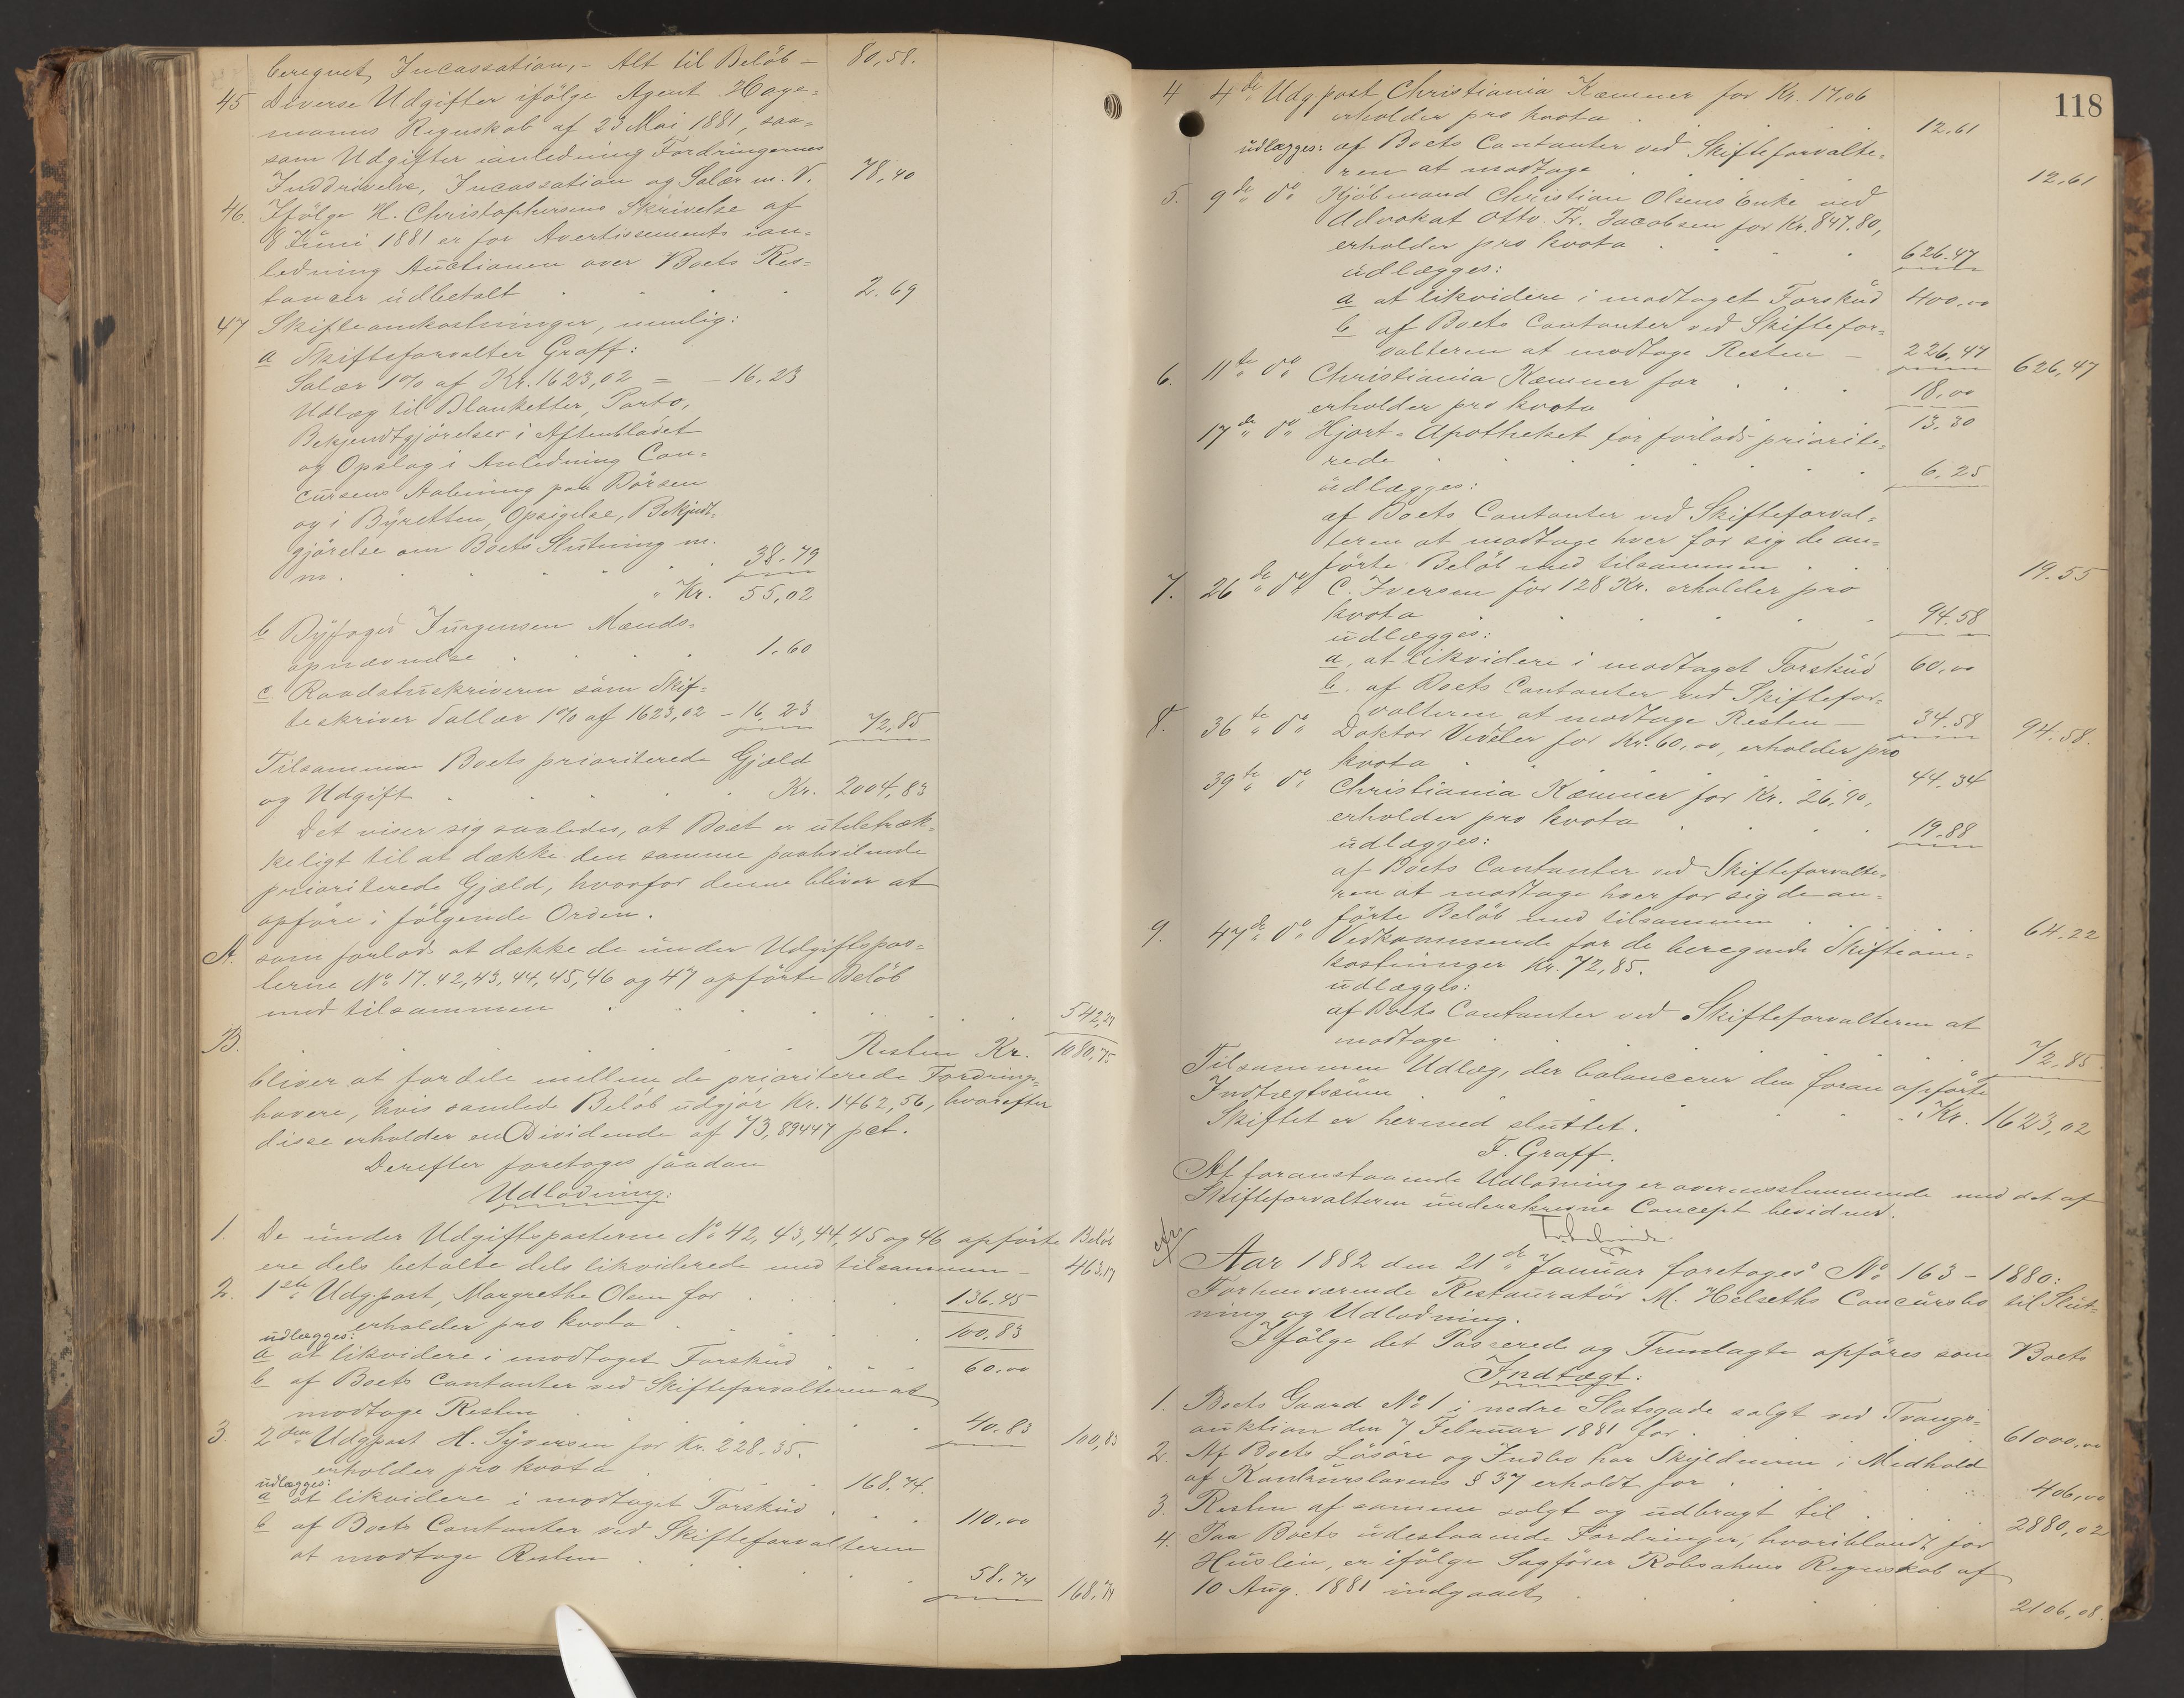 beregnet Incassation, - Alt til Beløb - 80,58.
45 Diverse Udgifter ifølge Agent Hage=
manns Regnskab af 23 Mai 1881, saa=
som Udgifter ianledning Fordringernes
Inddrivelse, Incassation og Salær m. V. 78,40
46. Ifølge H. Christophersens Skrivelse af
8 Juni 1881 er for Avertissements ian=
ledning Auctionen over Boets Res=
tancer udbetalt 2.69
47 Skifteomkostninger, nemlig:
a Skifteforvalter Graff:
Salær 1% af Kr. 1623,02 = - 16,23
Udlæg til Blanketter, Porto,
Bekjendtgjørelser i Aftenbladet
og Opslag i Anledning Con=
cursens Aabning paa Børsen
og i Byretten, Opsigelse, Bekjendt=
gjørelse om Boets Slutning m.
m. 38.79
" Kr. 55,02
b Byfoged Jürgensen Mænds=
opnævnelse 1.60
c Raadstuskriveren som Skif=
teskriver Sallær 1% af 1623,02 - 16,23 72,85
Tilsammen Boets prioriterede Gjæld
og Udgift Kr. 2004,83
Det viser sig saaledes, at Boet er utilstræk=
keligt til at dække den samme paahvilende
prioriterede Gjæld, hvorfor denne bliver at
opføre i følgende Orden.
A. som forlods at dække de under Udgiftspos=
terne No 17. 42, 43, 44, 45, 46 og 47 opførte Beløb
med tilsammen 542,27
B. Resten Kr. 1080,75
bliver at fordele mellem de prioriterede Fordrings=
havere, hvis samlede Beløb udgjør Kr. 1462,56, hvorefter
disse erholder en Dividende af 73,89447 pct.
Derefter foretages saadan
Udlodning:
1. De under Udgiftsposterne No 42, 43, 44, 45 og 46 opførte Beløb
ere dels betalte dels likviderede med tilsammen - 463.17
2. 1ste Udg.post, Margrethe Olsen for 136.45
erholder pro kvota 100.83
udlægges:
a at likvidere i modtaget Forskud 60.00
b af Boets Contanter ved Skifteforvalteren at
modtage Resten 40.83 100,83
3. 2den Udgpost H. Syversen for Kr. 228.35.
erholder pro kvota 168.74.
udlægges:
a at likvidere i modtaget Forskud 110.00
b af Boets Contanter ved Skifteforvalteren
at modtage Resten 58.74 168,74
118
4 4de Udgpost Christiania Kæmner for Kr. 17,06
erholder pro kvota 12.61
udlægges: af Boets Contanter ved Skifteforvalte=
ren at modtage 12.61
5. 9de do Kjøbmand Christian Olsens Enke ved
Advokat Otto Fr. Jacobsen for Kr. 847.80,
erholder pro kvota 626.47
udlægges:
a at likvidere i modtaget Forskud 400,00
b af Boets Contanter ved Skiftefor=
valteren at modtage Resten - 226.47 626,47
6. 11te do Christiania Kæmner for 18,00
erholder pro kvota 13.30
17de do Hjort-Apotheket for forlods priorite=
rede 6.25
udlægges:
af Boets Contanter ved Skifteforval=
teren at modtage hver for sig de an=
førte Beløb med tilsammen 19.55
7. 26de do C. Iversen for 128 Kr. erholder pro
kvota 94.58
udlægges:
a, at likvidere i modtaget Forskud 60,00
b, af Boets Contanter ved Skiftefor=
valteren at modtage Resten - 34.58 94.58.
8. 36te do Doktor Vedeler for Kr. 60,00, erholder pro
kvota 44.34
39te do Christiania Kæmner for Kr. 26,90,
erholder pro kvota 19.88
udlægges:
af Boets Contanter ved Skifteforvalte=
ren at modtage hver for sig de an=
førte Beløb med tilsammen 64.22
9. 47de do Vedkommende for de beregnede Skifteom=
kostninger Kr. 72,85.
udlægges:
af Boets Contanter ved Skifteforvalteren at
modtage 72,85
Tilsammen Udlæg, der balancerer den foran opførte
Indtægtssum Kr. 1623,02
Skiftet er hermed sluttet.
F. Graff.
At foranstaaende Udlodning er overensstemmende med det af
Skifteforvalteren underskrevne Concept bevidnes.
Aar 1882 den 21de Januar foretoges No 163 - 1880:
Forhenværende Restauratør M. Helseths Concursbo til Slut=
ning og Udlodning.
Ifølge det Passerede og Fremlagte opføres som Boets
Indtægt:
1. Boets Gaard No 1 i nedre Slotsgade solgt ved Tvangs=
auktion den 7 Februar 1881 for 61000,00
2. Af Boets Løsøre og Indbo har Skyldneren i Medhold
af Konkurslovens § 37 erholdt for 406,00
3. Resten af samme solgt og udbragt til 2880,02
4. Paa Boets udestaaende Fordringer, hvoriblandt for
Husleie, er ifølge Sagfører Robsahms Regnskab af
10 Aug. 1881 indgaaet 2106,08.